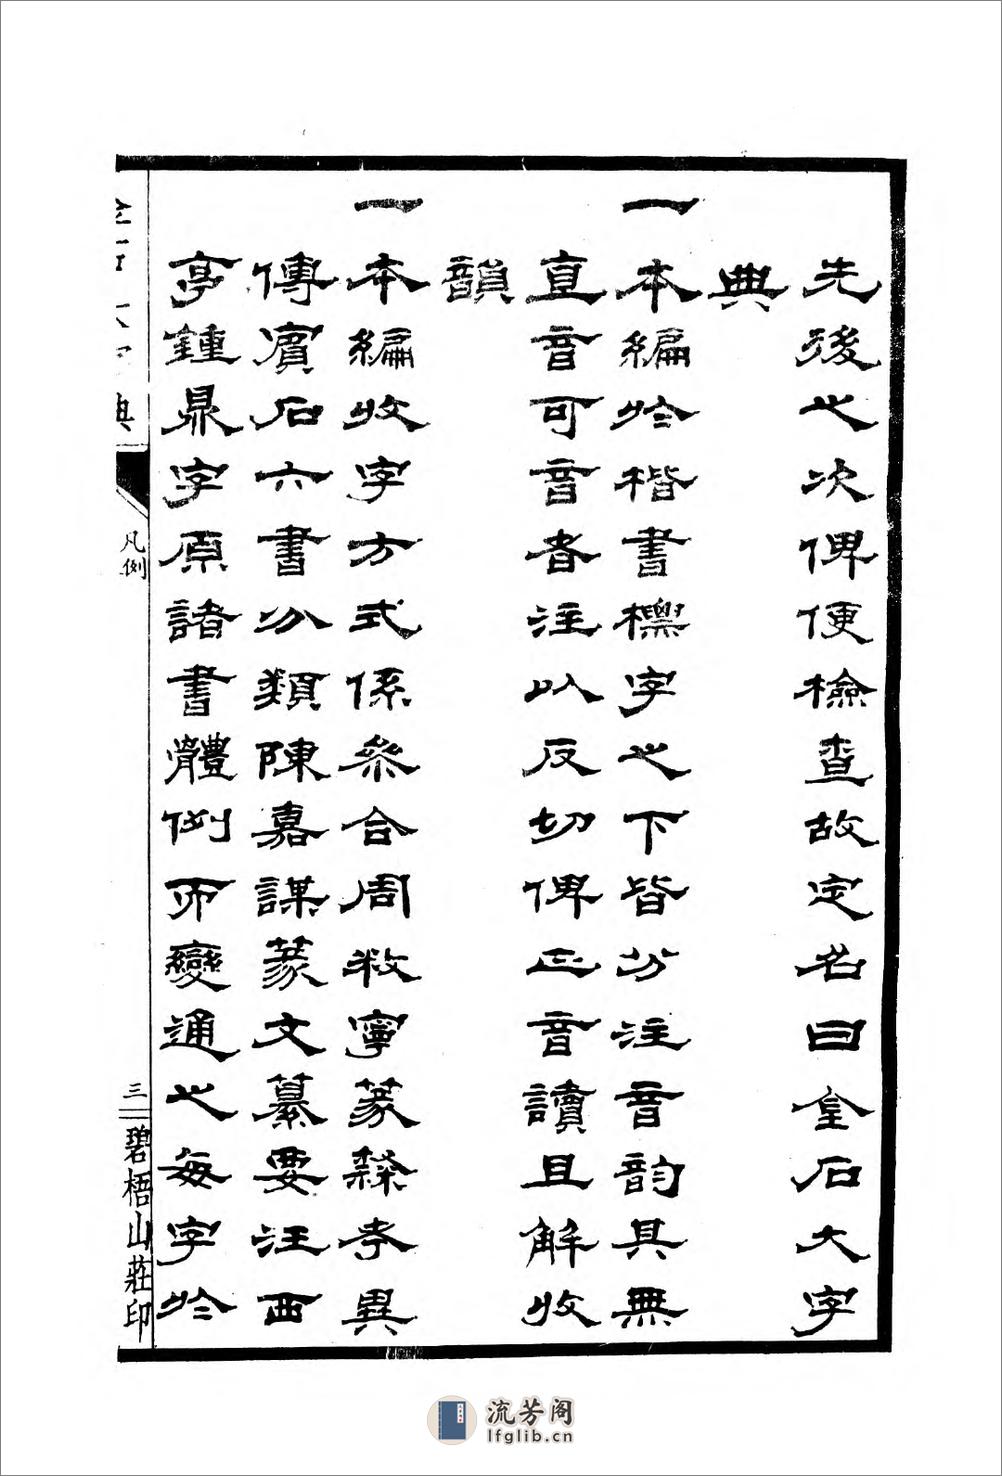 先後之次俾便檢查故定名曰金石大字
典
一本編於楷書標字之下皆分注音韵其無
直音可音者注以反切俾正音讀且解收
韻
一本編收字方式係參合周牧寧篆隸考異
傅濱石六書分類陳嘉謀篆文纂要汪西
亭鍾鼎字原諸書體例而變通之每字於
金石大字典
凡例
三
碧梧山莊印
流芳阁
lfglib.cn